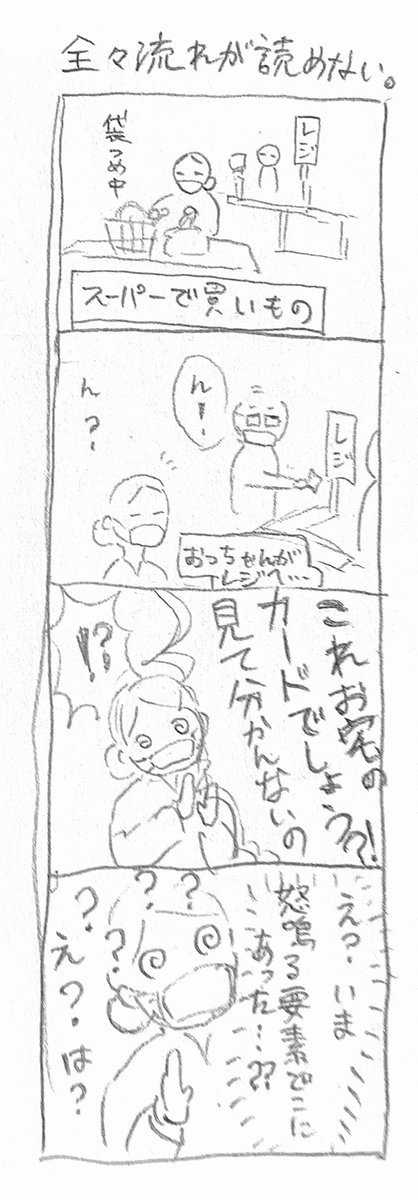 全々流れが読めない。
レジ
袋つめ中
スーパーで買いもの
ん!
レジ
ん?
おっちゃんが
レジへ…
これお宅の
カードでしょう?!
見て分かんないの
!?
え?いま
怒鳴る要素どこに
あった…??
? ? ? ? ?
え?は?